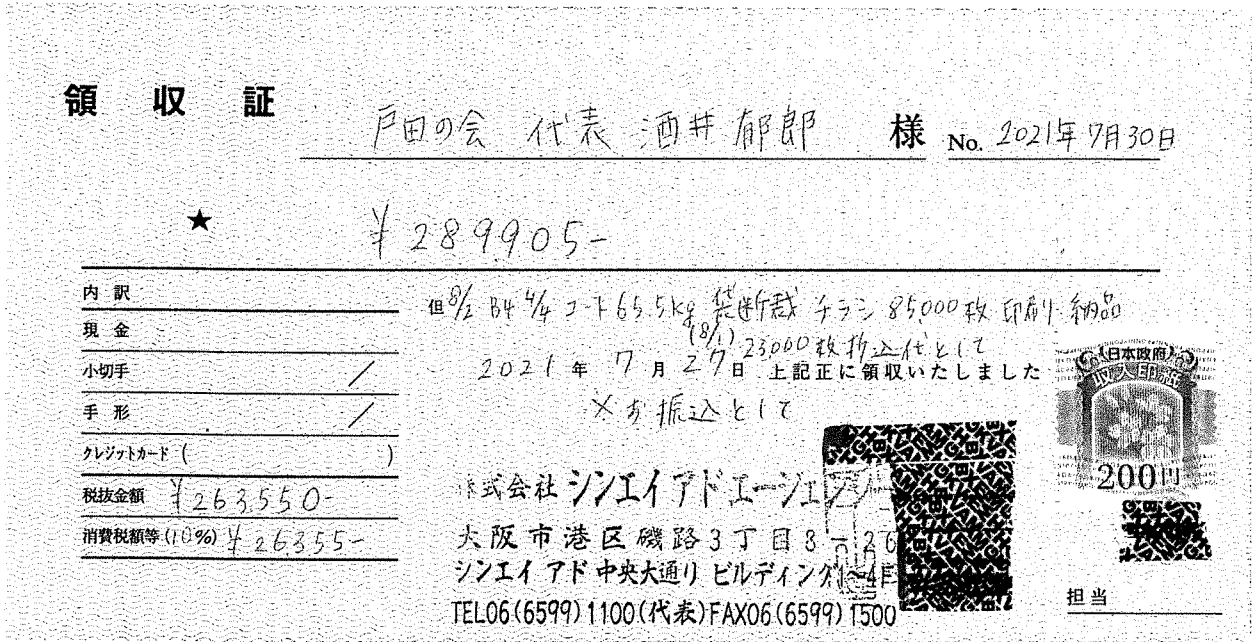 領 収 証
戸田の会 代表 酒井 郁郎 様 No. 2021年7月30日
★ ¥289905-
内 訳
現 金
小切手 /
手 形 /
クレジットカード ( )
税抜金額 ¥263550-
消費税額等(10%) ¥26355-
但 8/2 B4 4/4 コート65.5kg 断裁 チラシ 85,000枚 印刷・納品
(8/1) 23000枚折込代として
2021 年 7 月 27 日 上記正に領収いたしました
×お振込として
株式会社 シンエイアドエージェンシー
大阪市港区磯路3丁目3-26
シンエイ アド 中央大通り ビルディング1~4F
TEL06(6599)1100(代表)FAX06(6599)1500
日本政府
収入印紙
200円
担当